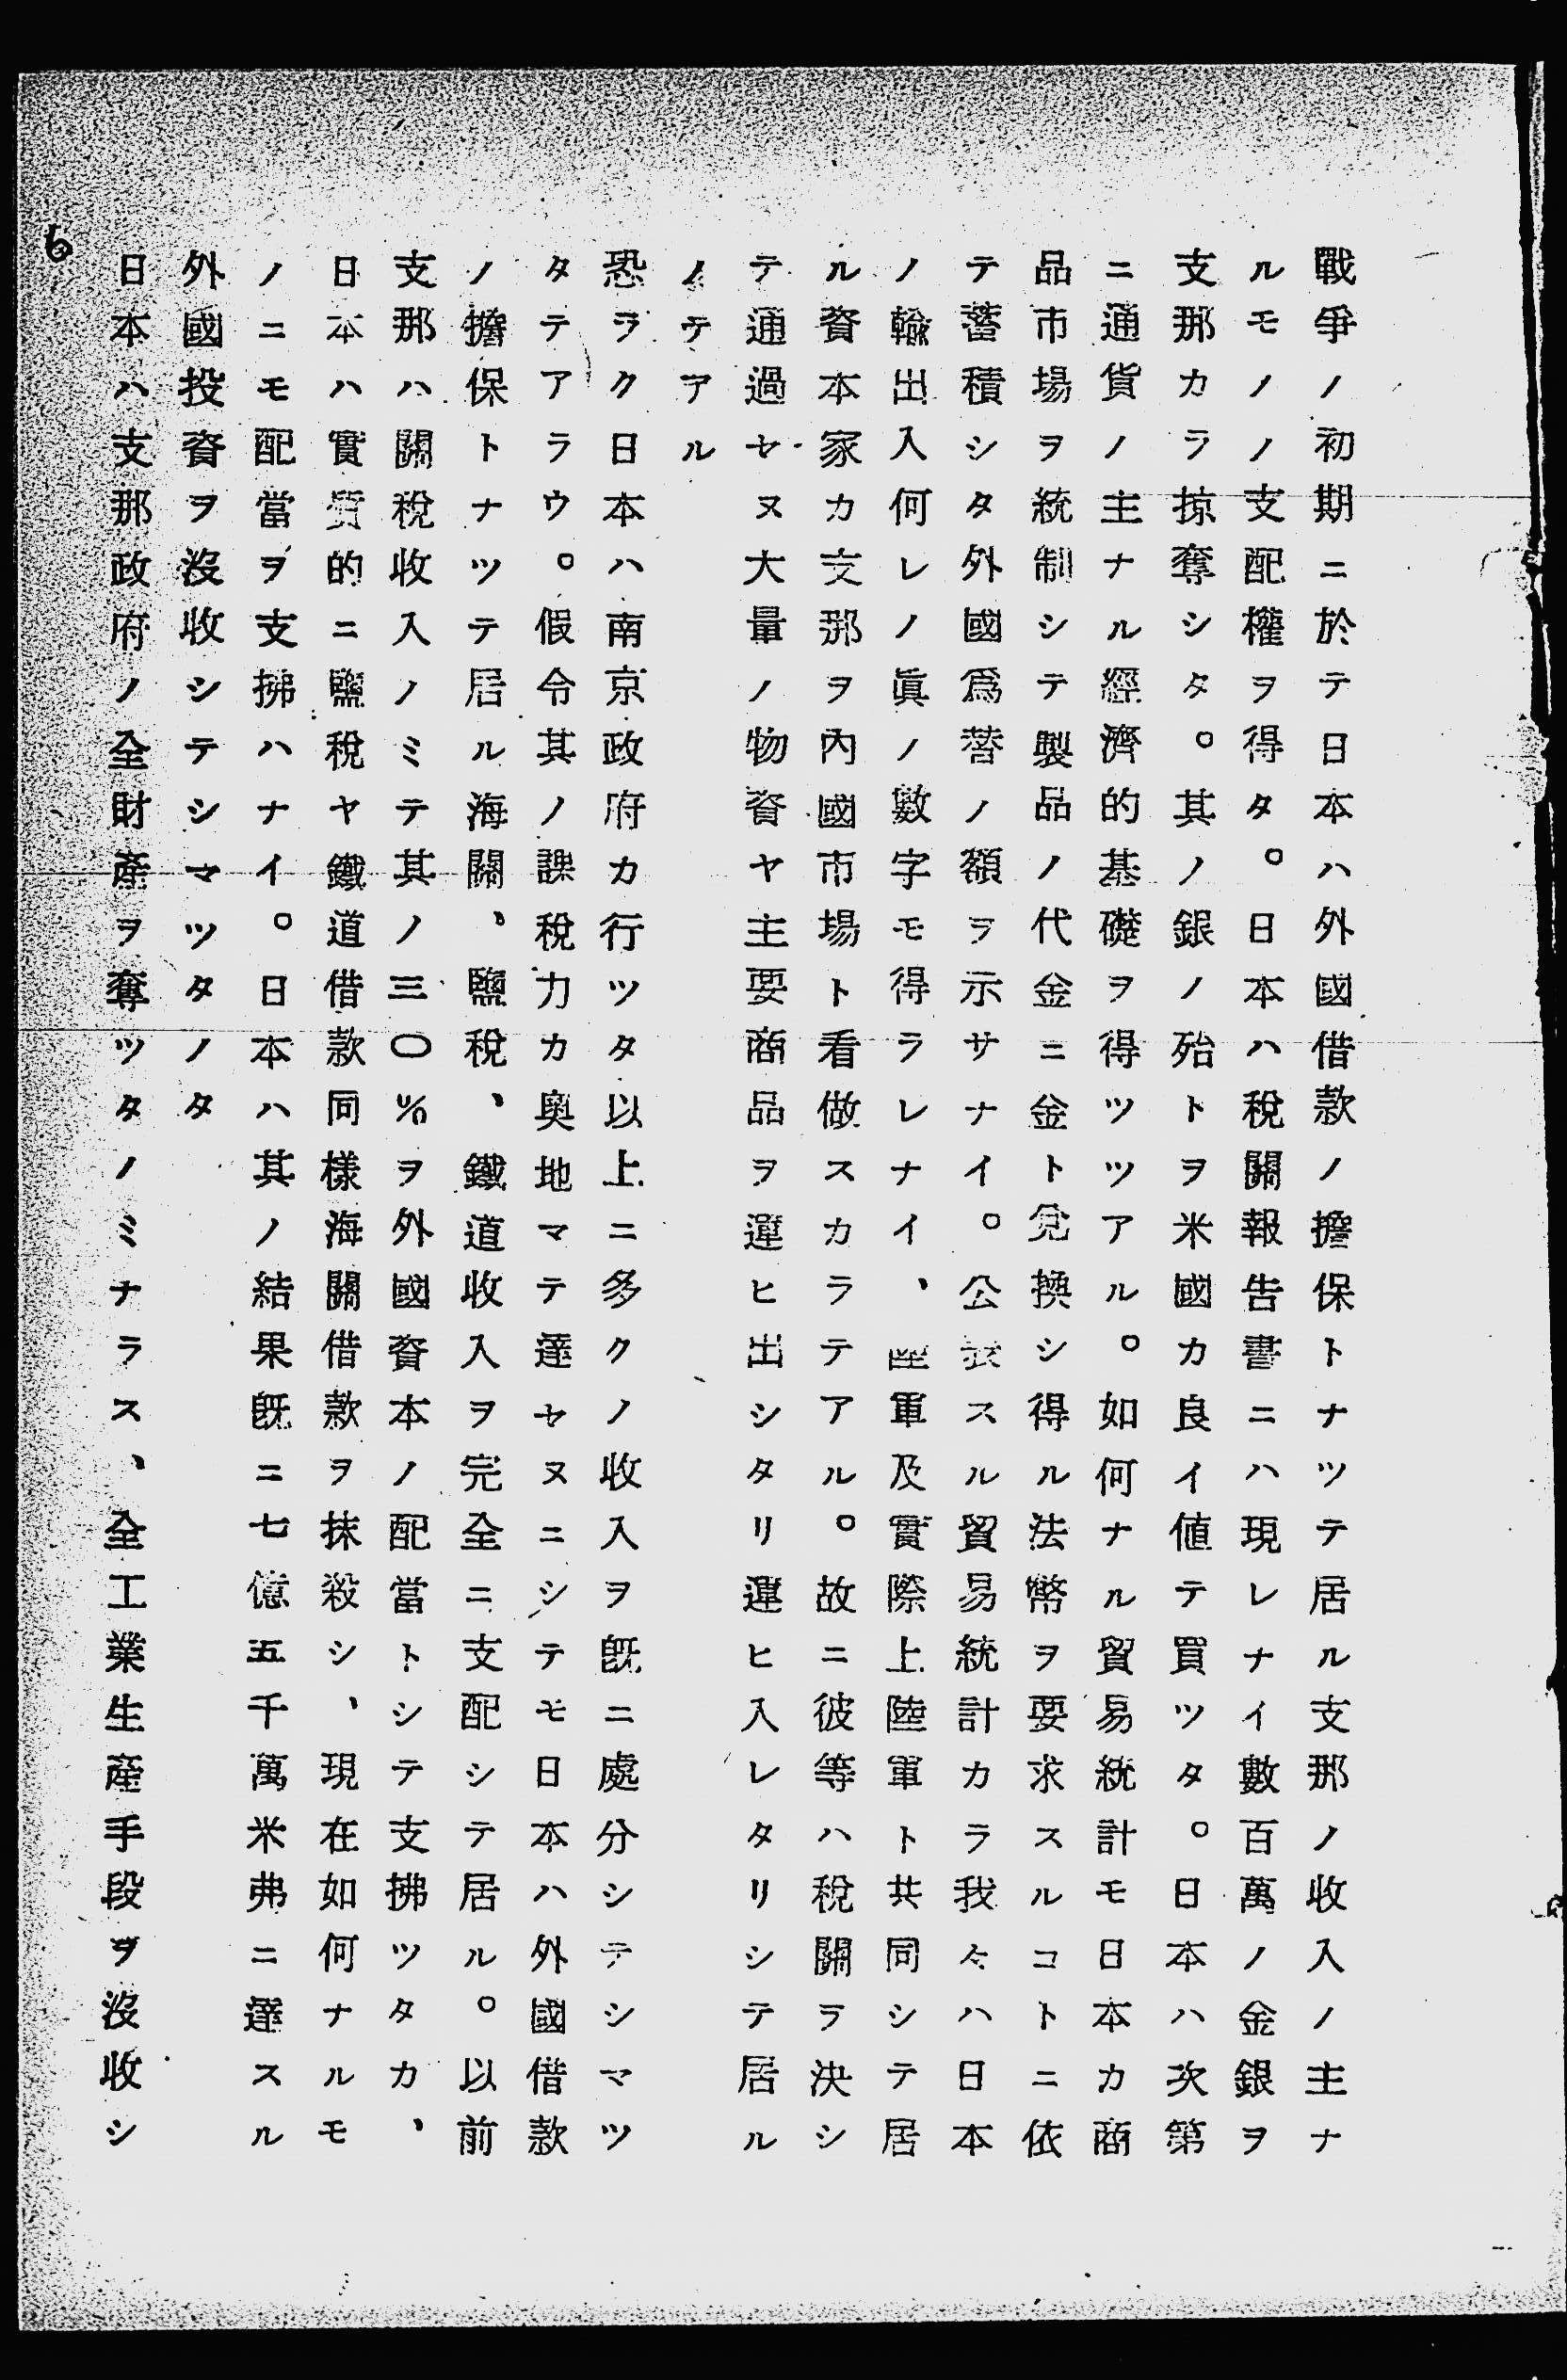 戰爭ノ初期ニ於テ日本ハ外國借款ノ擔保トナツテ居ル支那ノ收入ノ主ナ
ルモノノ支配權ヲ得タ。日本ハ稅關報告書ニハ現レナイ數百萬ノ金銀ヲ
支那カラ掠奪シタ。其ノ銀ノ殆トヲ米國カ良イ値テ買ツタ。日本ハ次第
ニ通貨ノ主ナル經濟的基礎ヲ得ツツアル。如何ナル貿易統計モ日本カ商
品市場ヲ統制シテ製品ノ代金ニ金ト兌換シ得ル法幣ヲ要求スルコトニ依
テ蓄積シタ外國爲替ノ額ヲ示サナイ。公表スル貿易統計カラ我々ハ日本
ノ輸出入何レノ眞ノ數字モ得ラレナイ、陸軍及實際上陸軍ト共同シテ居
ル資本家カ支那ヲ內國市場ト看做スカラテアル。故ニ彼等ハ稅關ヲ決シ
テ通過セヌ大量ノ物資ヤ主要商品ヲ運ヒ出シタリ運ヒ入レタリシテ居ル
ノテアル
恐ラク日本ハ南京政府カ行ツタ以上ニ多クノ收入ヲ旣ニ處分シテシマツ
タテアラウ。假令其ノ課稅力カ奧地マテ達セヌニシテモ日本ハ外國借款
ノ擔保トナツテ居ル海關、鹽稅、鐵道收入ヲ完全ニ支配シテ居ル。以前
支那ハ關稅收入ノミテ其ノ三〇%ヲ外國資本ノ配當トシテ支拂ツタカ、
日本ハ實質的ニ鹽稅ヤ鐵道借款同樣海關借款ヲ抹殺シ、現在如何ナルモ
ノニモ配當ヲ支拂ハナイ。日本ハ其ノ結果旣ニ七億五千萬米弗ニ達スル
外國投資ヲ沒收シテシマツタノタ
日本ハ支那政府ノ全財產ヲ奪ツタノミナラス、全工業生產手段ヲ沒收シ
6